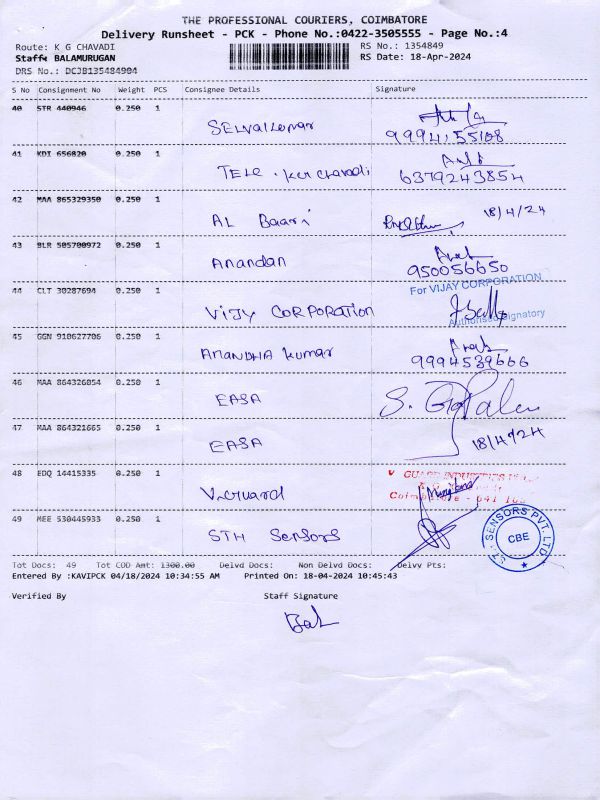 THE PROFESSIONAL COURIERS, COIMBATORE
Delivery Runsheet - PCK - Phone No.:0422-3505555 - Page No.:4
Route: K G CHAVADI RS No.: 1354849
Staff: BALAMURUGAN RS Date: 18-Apr-2024
DRS No.: DCJB135484904
S No Consignment No Weight PCS Consignee Details Signature
40 STR 440946 0.250 1
Selvakumar
9994155108
41 KDI 656820 0.250 1
TELE . KG chavadi
6379243854
42 MAA 865329350 0.250 1
AL Baari 18/4/24
43 BLR 505700972 0.250 1
Anandan
950056650
44 CLT 30287694 0.250 1
For VIJAY CORPORATION
VIJY CORPORATION
Authorised Signatory
45 GGN 910627706 0.250 1
ANANDHA kumar
9994539666
46 MAA 864326054 0.250 1
EASA S. Gopalan
47 MAA 864321665 0.250 1
EASA 18/4/24
48 EDQ 14415335 0.250 1
V.Guard
V GUARD INDUSTRIES
Coimbatore - 641
49 MEE 530445933 0.250 1
STH Sensors
SENSORS PVT. LTD.
CBE
Tot Docs: 49 Tot COD Amt: 1300.00 Delvd Docs: Non Delvd Docs: Delvy Pts:
Entered By :KAVIPCK 04/18/2024 10:34:55 AM Printed On: 18-04-2024 10:45:43
Verified By Staff Signature
Bal